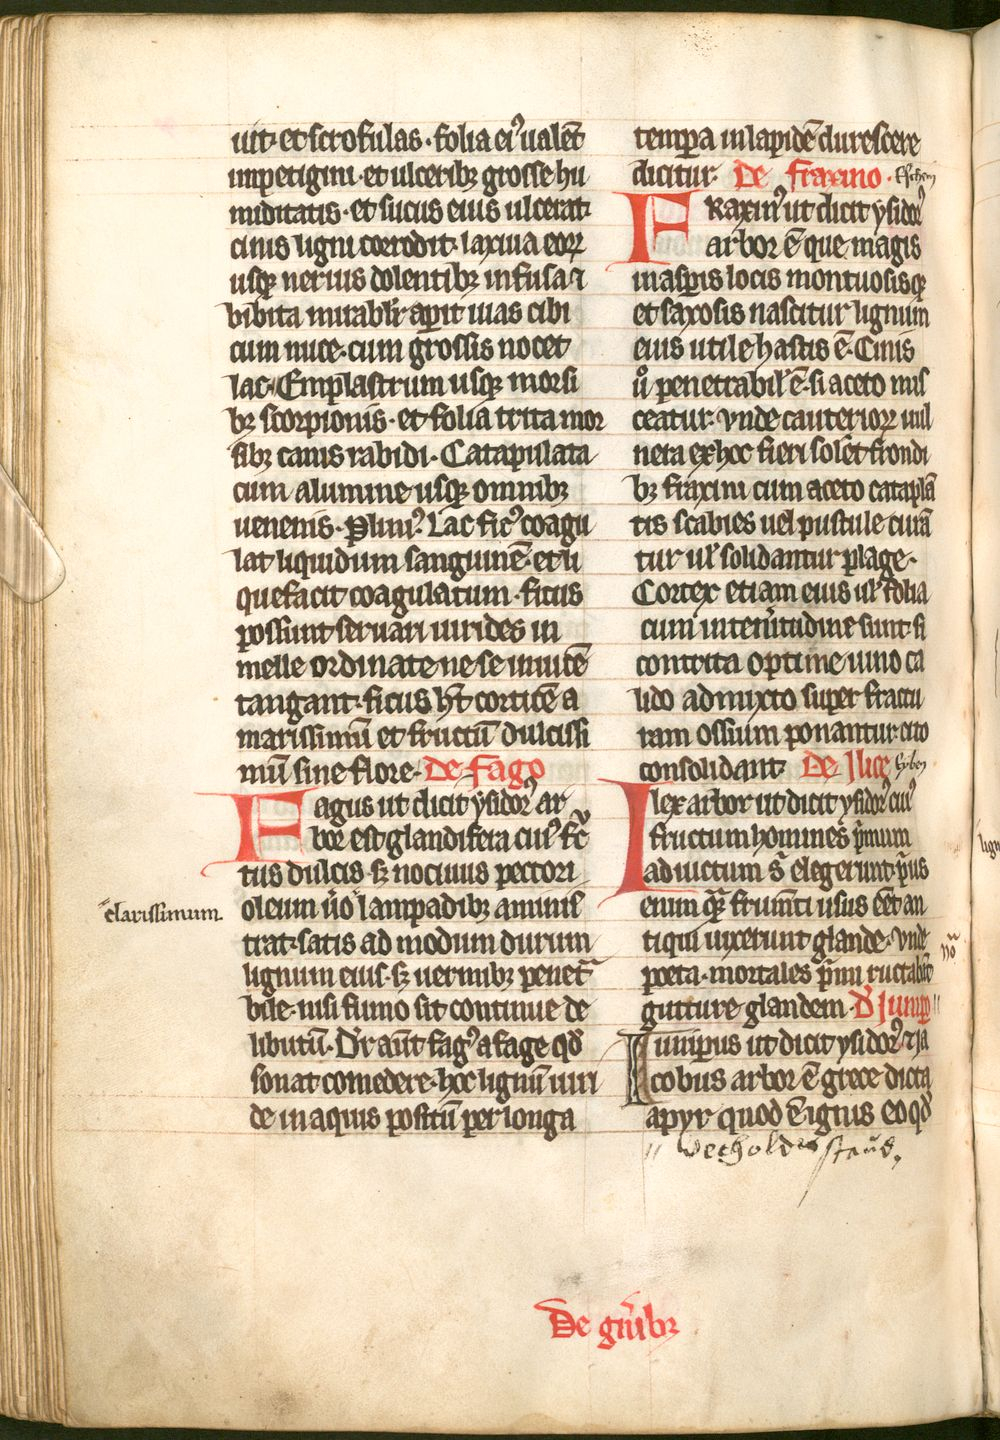 uit· et scrofulas· folia eiꝰ ualēt
impetigini· et ulceribꝫ grosse hu
miditatis· et sucus eius ulcerat·
cinis ligni corrodit· laxiua eoꝝ
usqꝫ neruis dolentibꝫ infusa ⁊
bibita mirabłr aꝑit uias cibi
cum nuce· cum grossis nocet
lac· Emplastrum usqꝫ morsi
bꝫ scorpionis· et folia trita mor
sibꝫ canis rabidi· Cataplata
cum alumine usqꝫ omnibꝫ
uenenis· Pliniꝰ· Lac ficꝰ coagu
lat liquidum sanguinē· et li
quefacit coagulatum· ficus
possunt seruari uirides in
melle ordinate ne se inuicē
tangant· ficus hn̄t corticē a
marissimū et fructū dulcissi
mū sine flore· De fago
Fagus ut dicit ysidorꝰ ar
bor est glandifera cuiꝰ fc̄
tus dulcis· sꝫ nociuus pectori
clarissimum
oleum ūo lampadibꝫ aminis
trat· satis ad modum durum
lignum eius· sꝫ uermibꝫ penet̃
bile· nisi fumo sit continue de
libutū· Dr̄ aūt fagꝰ a fage qd̄
sonat comedere· hoc lignū uiri
de in aquis positū per longa
tempora in lapidē durescere
dicitur· De fraxino· Eschen
Fraxinꝰ ut dicit ysidorꝰ
arbor ē que magis
in asperis locis montuosisqꝫ
et saxosis nascitur lignum
eius utile hastis ē· Cinis
ů penetrabił ē· si aceto mis
ceatur· vnde cauterioꝝ uul
nera ex hoc fieri solēt frondi
bꝫ fraxini cum aceto cataplā
tis scabies uel pustule curā
tur uł solidantur plage·
Cortex etiam eius uł folia
cum interitudine sunt· si
contrita optime uino ca
lido admixto super fractu
ram ossium ponantur· cito
consolidant· De Ilice Eyben
Ilex arbor ut dicit ysidorꝰ cuiꝰ
fructum homines p̄mum
ad uictum s̄ elegerunt· pͥus
enim qͣ frum̄ti usus eēt an
tiqui uixerunt glande· vnde
nō
poeta· mortales p̄mi ructabāt
gutture glandem· D' Iuniꝑo
Iuniꝑus ut dicit ysidorꝰ ⁊ Ja
cobus arbor ē grece dicta
apyr quod ē ignis eo qd̄
〃 Wecholder staud.
De gn̄ibꝫ